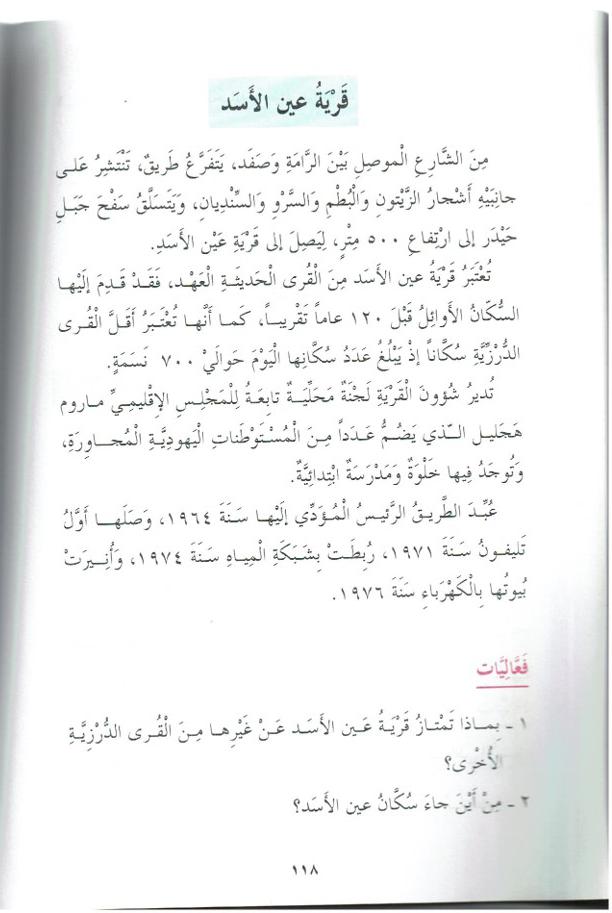 قَرْيَةُ عين الأَسَد
مِنَ الشَّارِعِ الْموصِلِ بَيْنَ الرَّامَةِ وَصَفَد، يَتَفَرَّعُ طَريقٌ، تَنْتَشِرُ عَلى
جانِبَيْهِ أَشْجارُ الزَّيْتونِ وَالْبُطْمِ وَالسَّرْوِ وَالسِّنْدِيان، وَيَتَسَلَّقُ سَفْحَ جَبَلِ
حَيْدَر إلى ارْتِفاعِ ٥٠٠ مِتْرٍ، لِيَصِلَ إلى قَرْيَةِ عَيْن الأَسَدِ.
تُعْتَبَرُ قَرْيَةُ عين الأَسَد مِنَ الْقُرى الْحَديثَةِ الْعَهْد، فَقَدْ قَدِمَ إلَيْها
السُّكّانُ الأَوائِلُ قَبْلَ ١٢٠ عاماً تَقْريباً، كَما أَنَّها تُعْتَبَرُ أَقَلَّ الْقُرى
الدُّرْزِيَّةِ سُكّاناً إذْ يَبْلُغُ عَدَدُ سُكّانِها الْيَوْمَ حَوالَيْ ٧٠٠ نَسَمَةٍ.
تُديرُ شُؤونَ الْقَرْيَةِ لَجْنَةٌ مَحَلِّيَةٌ تابِعَةُ لِلْمَجْلِسِ الإِقْليمِيِّ ماروم
هَجَليل الّذي يَضُمُّ عَدَداً مِنَ الْمُسْتَوْطَناتِ الْيَهودِيَّةِ الْمُجاوِرَةِ،
وَتُوجَدُ فيها خَلْوَةٌ وَمَدْرَسَةٌ ابْتِدائِيَّةٌ.
عُبِّدَ الطَّريقُ الرَّئيسُ الْمُؤَدِّي إلَيْها سَنَةَ ١٩٦٤، وَصَلَها أَوَّلُ
تَليفون سَنَةَ ١٩٧١، رُبِطَتْ بِشَبَكَةِ الْمِياهِ سَنَةَ ١٩٧٤، وَأُنيرَتْ
بُيوتُها بِالْكَهْرَباءِ سَنَةَ ١٩٧٦.
فَعَّالِيَّات
١ ـ بِماذا تَمْتازُ قَرْيَةُ عَين الأَسَد عَنْ غَيْرِها مِنَ الْقُرى الدُّرْزِيَّةِ
الأُخْرى؟
٢ ـ مِنْ أَيْنَ جاءَ سُكّانُ عين الأَسَد؟
١١٨